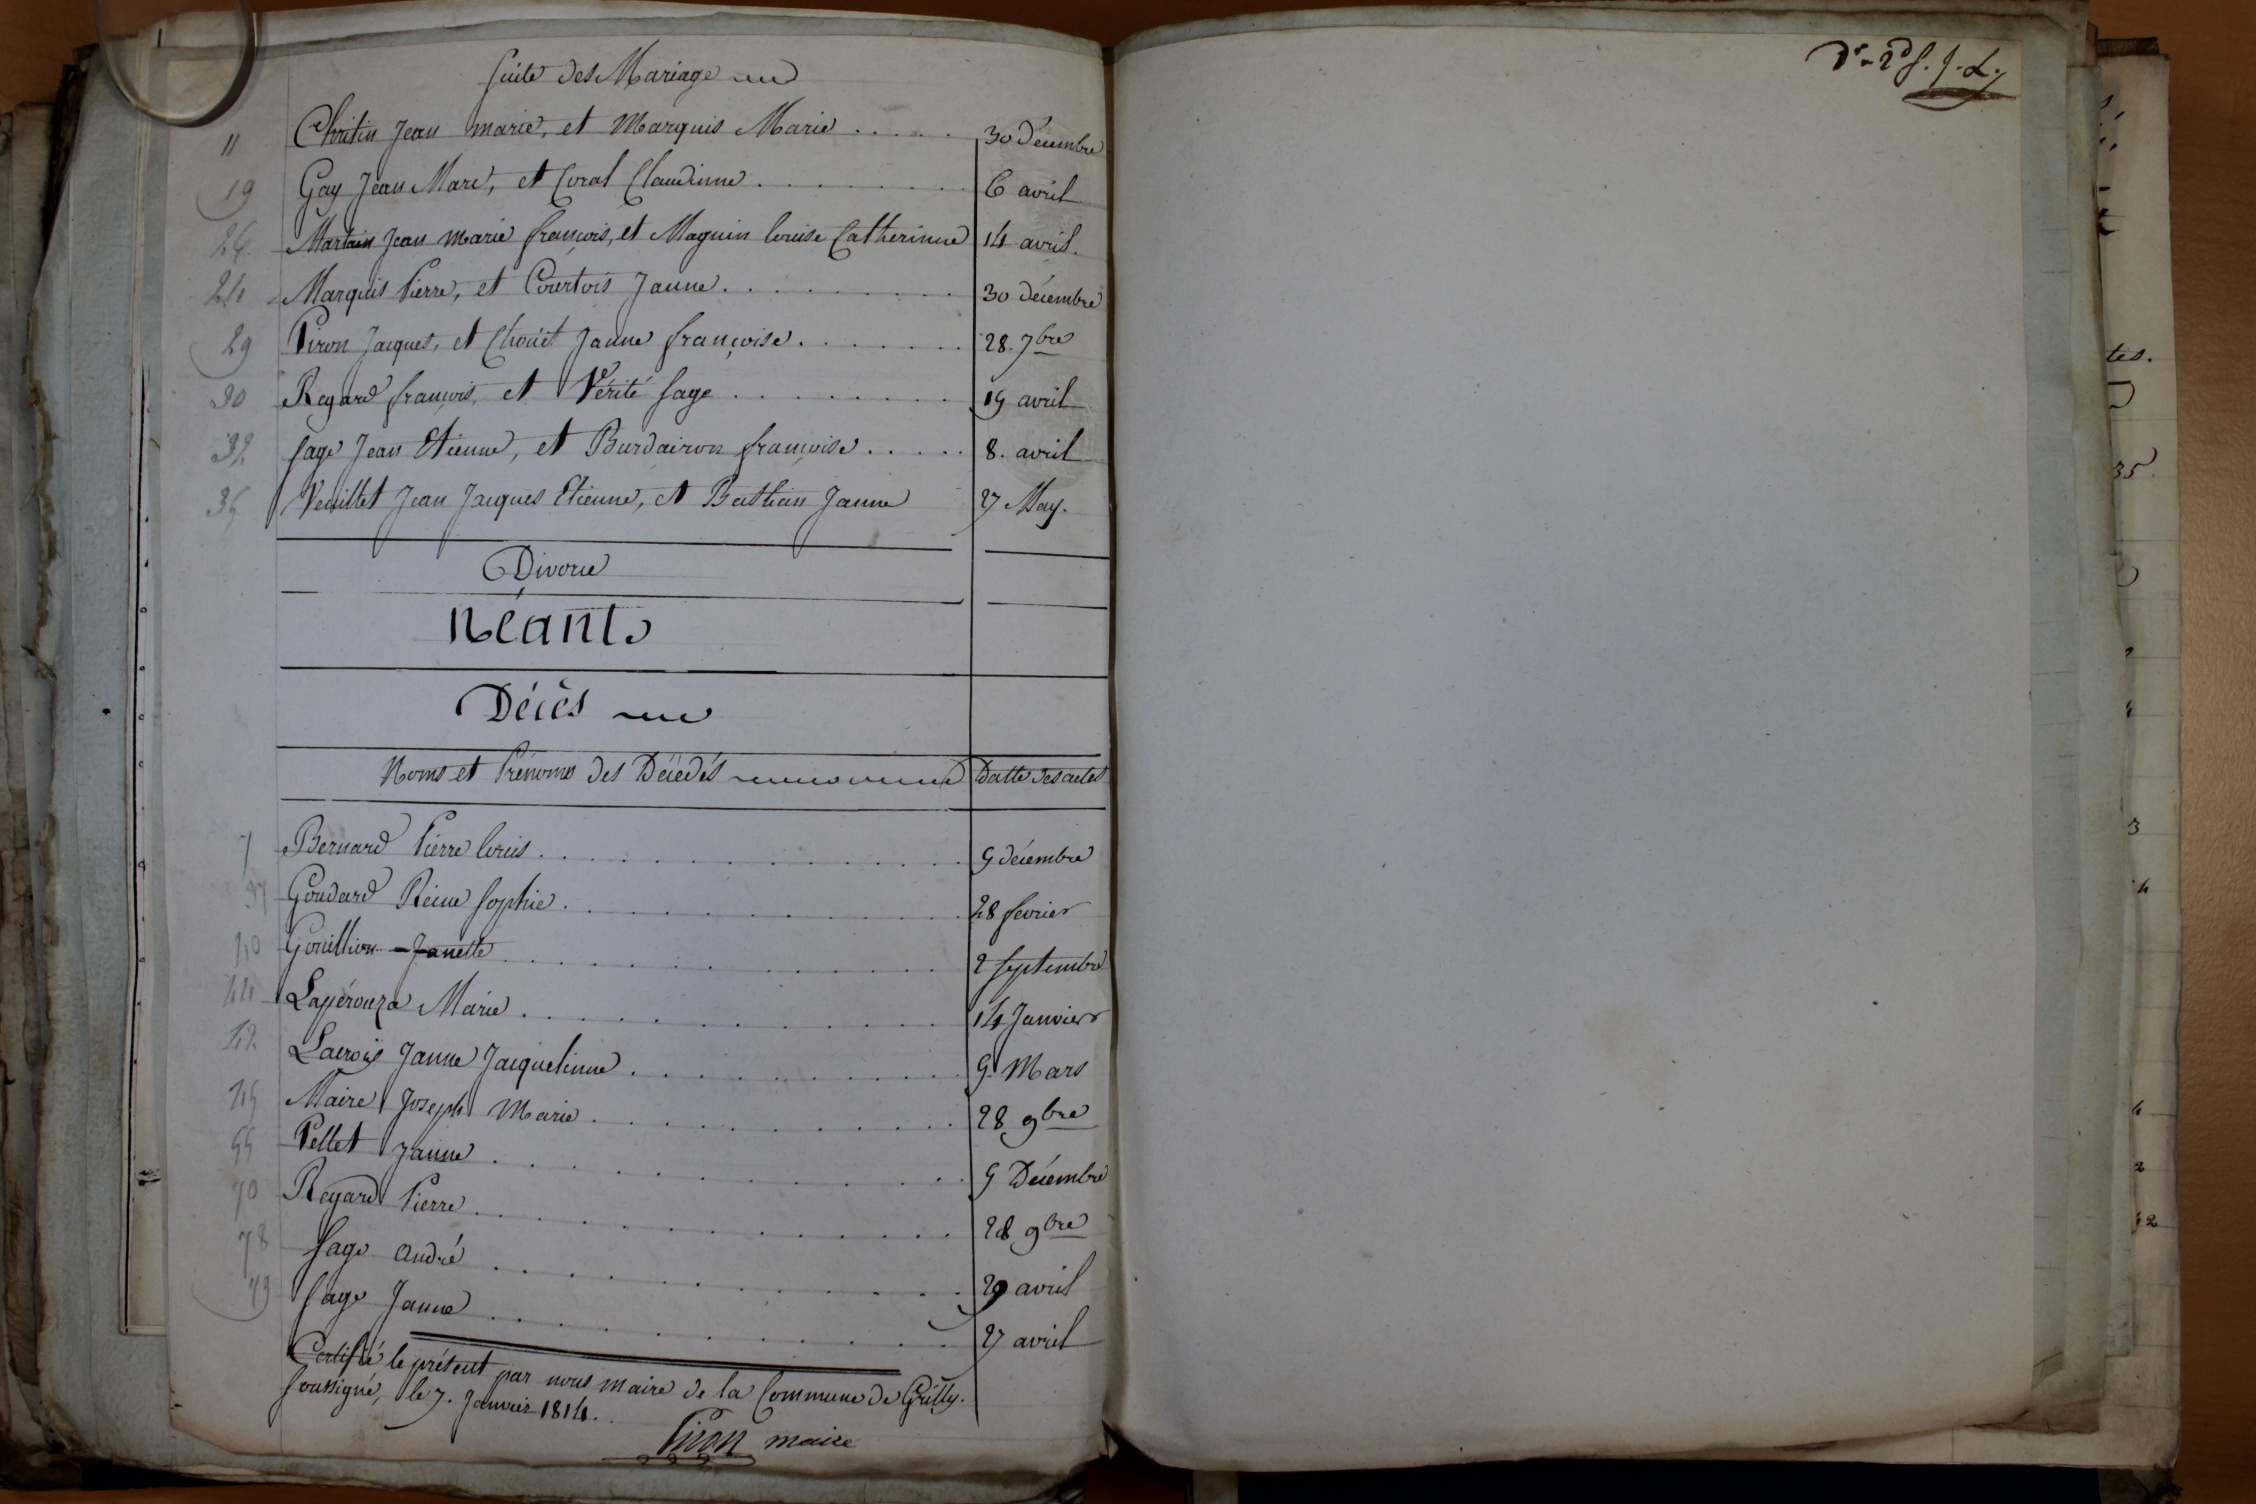 Suite des Mariage
11 Chritin Jean marie, et Marquis Marie ..... 30 Décembre
19 Gay Jean Marc, et Coral Claudinne ......... 6 avril
24 Martain Jean marie françois, et Magnin louise Catherinne 14 avril.
24 Marquis Pierre, et Courtois Janne ......... 30 décembre
29 Piron Jacques, et Chouët Janne françoise ....... 28. 7bre
30 Regard françois, et Vérité Sage ......... 19 avril
32 Sage Jean Etienne, et Burdairon françoise ..... 8. avril
35 Veuillet Jean Jacques Etienne, et Bastian Janne 27 May.
Divorce
Néant
Décès
Noms et Prénoms des Décedés Datte des actes
7 Bernard Pierre louis ......... 9 décembre
37 Goudard Reine Sophie ......... 28 fevrier
40 Gouillion Janette ......... 2 Septembre
44 Lapérouza Marie ......... 14 Janvier
42 Lacroix Janne Jacquelinne ......... 9. Mars
45 Maire Joseph Marie ......... 28 9bre
55 Pellet Janne ......... 9 Décembre
70 Regard Pierre ......... 28 9bre
78 Sage andré ......... 29 avril
79 Sage Janne ......... 27 avril
Certifié le présent par nous maire de la Commune de Grilly.
Soussigné, le 7. Janvier 1814.
Piron maire
tes.
35